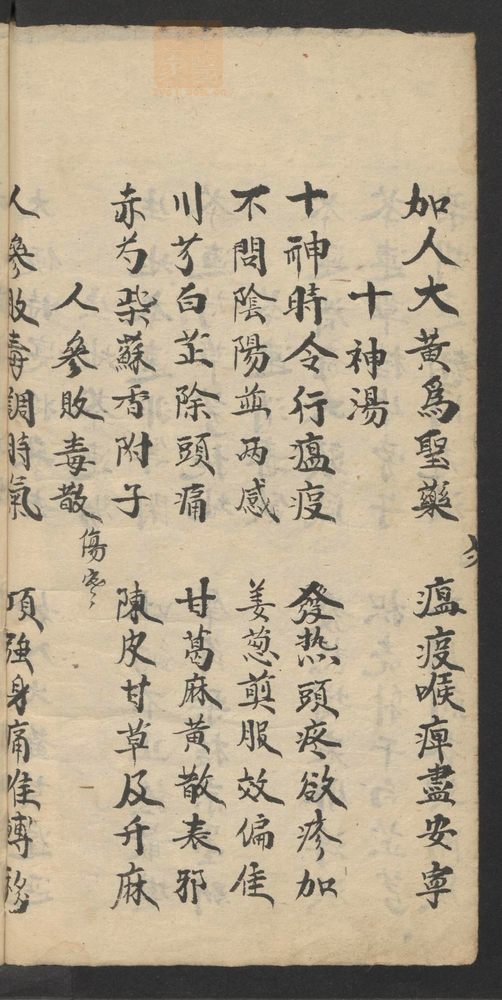 加人大黃爲聖藥 瘟疫喉痺盡安寧
十神湯
十神時令行瘟疫 發热頭疼欲疹加
不問陰陽並两感 姜葱煎服效偏佳
川芎白芷除頭痛 甘葛麻黄散表邪
赤芍柴蘇香附子 陳皮甘草及升麻
人參敗毒散 傷寒
人參敗毒調時氣 項强身痛佳